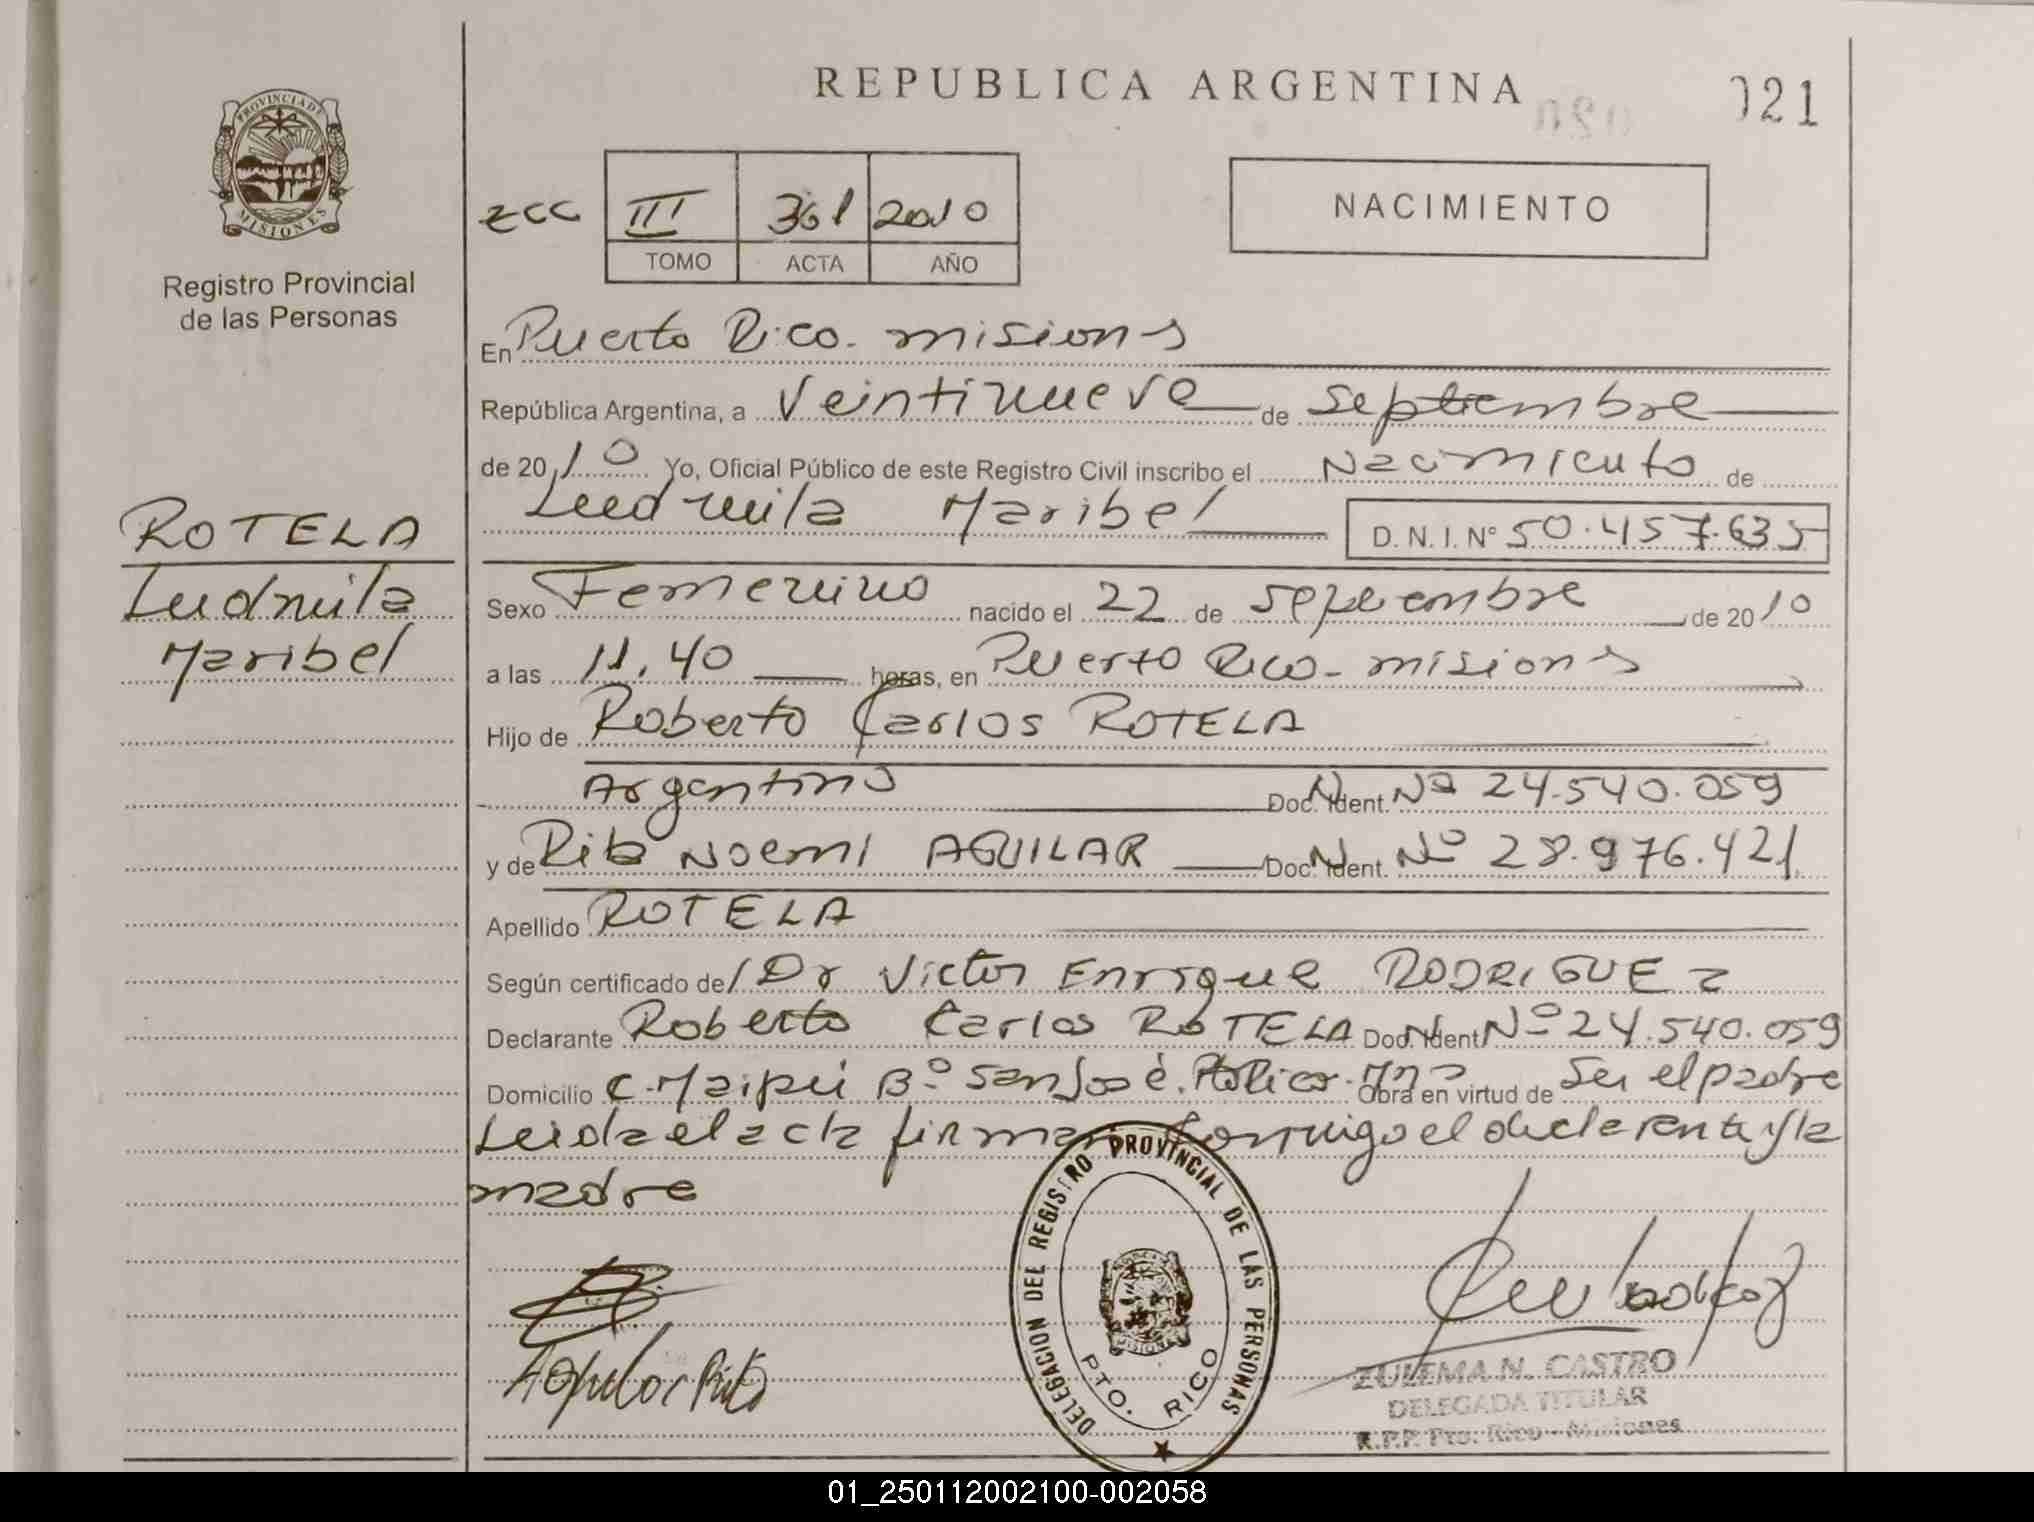 REPUBLICA ARGENTINA
021
PROVINCIA DE
MISIONES
Registro Provincial
de las Personas
III 361 2010
TOMO ACTA AÑO
NACIMIENTO
En Puerto Rico. misiones
República Argentina, a veintinueve de septiembre
de 2010 Yo, Oficial Público de este Registro Civil inscribo el Nacimiento de
Ludmila Maribel D.N.I. N° 50.457.635
ROTELA
Ludmila
Maribel
Sexo Femenino nacido el 22 de septiembre de 2010
a las 11.40 horas, en Puerto Rico - misiones
Hijo de Roberto Carlos ROTELA
Argentino Doc. Ident. Nº 24.540.059
y de Rita Noemi AGUILAR Doc. Ident. Nº 28.976.421
Apellido ROTELA
Según certificado de Dr Victor Enrique RODRIGUEZ
Declarante Roberto Carlos ROTELA Doc. Ident Nº 24.540.059
Domicilio C. Maipú Bº San José. Obra en virtud de ser el padre
Leida el acta firman conmigo el declarante y la
madre
DELEGACION DEL REGISTRO PROVINCIAL DE LAS PERSONAS
PTO. RICO
Aguilar Rita
ZULEMA N. CASTRO
DELEGADA TITULAR
R.P.P. Pto. Rico - Misiones
01_250112002100-002058